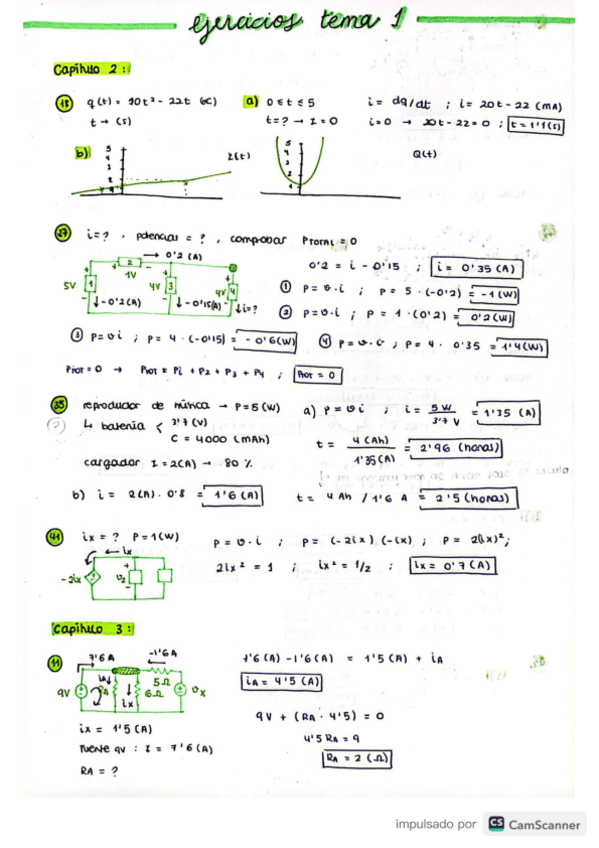 ejercicios tema 1
Capítulo 2:
18 q(t) = 10t² - 22t (C) a) 0 ≤ t ≤ 5 i = dq/dt ; i = 20t - 22 (mA)
t → (s) t = ? → I = 0 i = 0 → 20t - 22 = 0 ; t = 1'1(s)
b) 5 4 3 2 I(t) 5 4 3 2 1 Q(t)
27 i = ? , potencias = ? , comprobar PTOTAL = 0
→ 0'2 (A) 0'2 = i - 0'15 ; i = 0'35 (A)
5V 1 + 2 - 1V 4V 3 4V 4 ↓ -0'2(A) ↓ -0'15(A) ↓ i=?
① P = v·i ; P = 5 · (-0'2) = -1 (W)
② P = v·i ; P = 1 · (0'2) = 0'2(W)
③ P = v i ; P = 4 · (-0'15) = -0'6(W) ④ P = v·i ; P = 4 · 0'35 = 1'4(W)
PTOT = 0 → PTOT = P1 + P2 + P3 + P4 ; PTOT = 0
35 reproductor de música → P = 5 (W) a) P = v i ; i = 5 W / 3'7 V = 1'35 (A)
↳ batería < 3'7 (V)
C = 4000 (mAh) t = 4 (Ah) / 1'35 (A) = 2'96 (horas)
cargador I = 2(A) → 80 %
b) i = 2(A) · 0'8 = 1'6 (A) t = 4 Ah / 1'6 A = 2'5 (horas)
41 ix = ? P = 1(W) P = v·i ; P = (-2ix) (-ix) ; P = 2(ix)² ;
← ix
-2ix + v2 - 2ix² = 1 ; ix² = 1/2 ; ix = 0'7 (A)
Capítulo 3:
11 7'6 A -1'6 A 1'6 (A) - 1'6 (A) = 1'5 (A) + iA
9V iA RA 6Ω ix 5Ω vx iA = 4'5 (A)
ix = 1'5 (A) 9V + (RA · 4'5) = 0
fuente 9V : I = 7'6 (A) 4'5 RA = 9
RA = ? RA = 2 (Ω)
impulsado por CS CamScanner